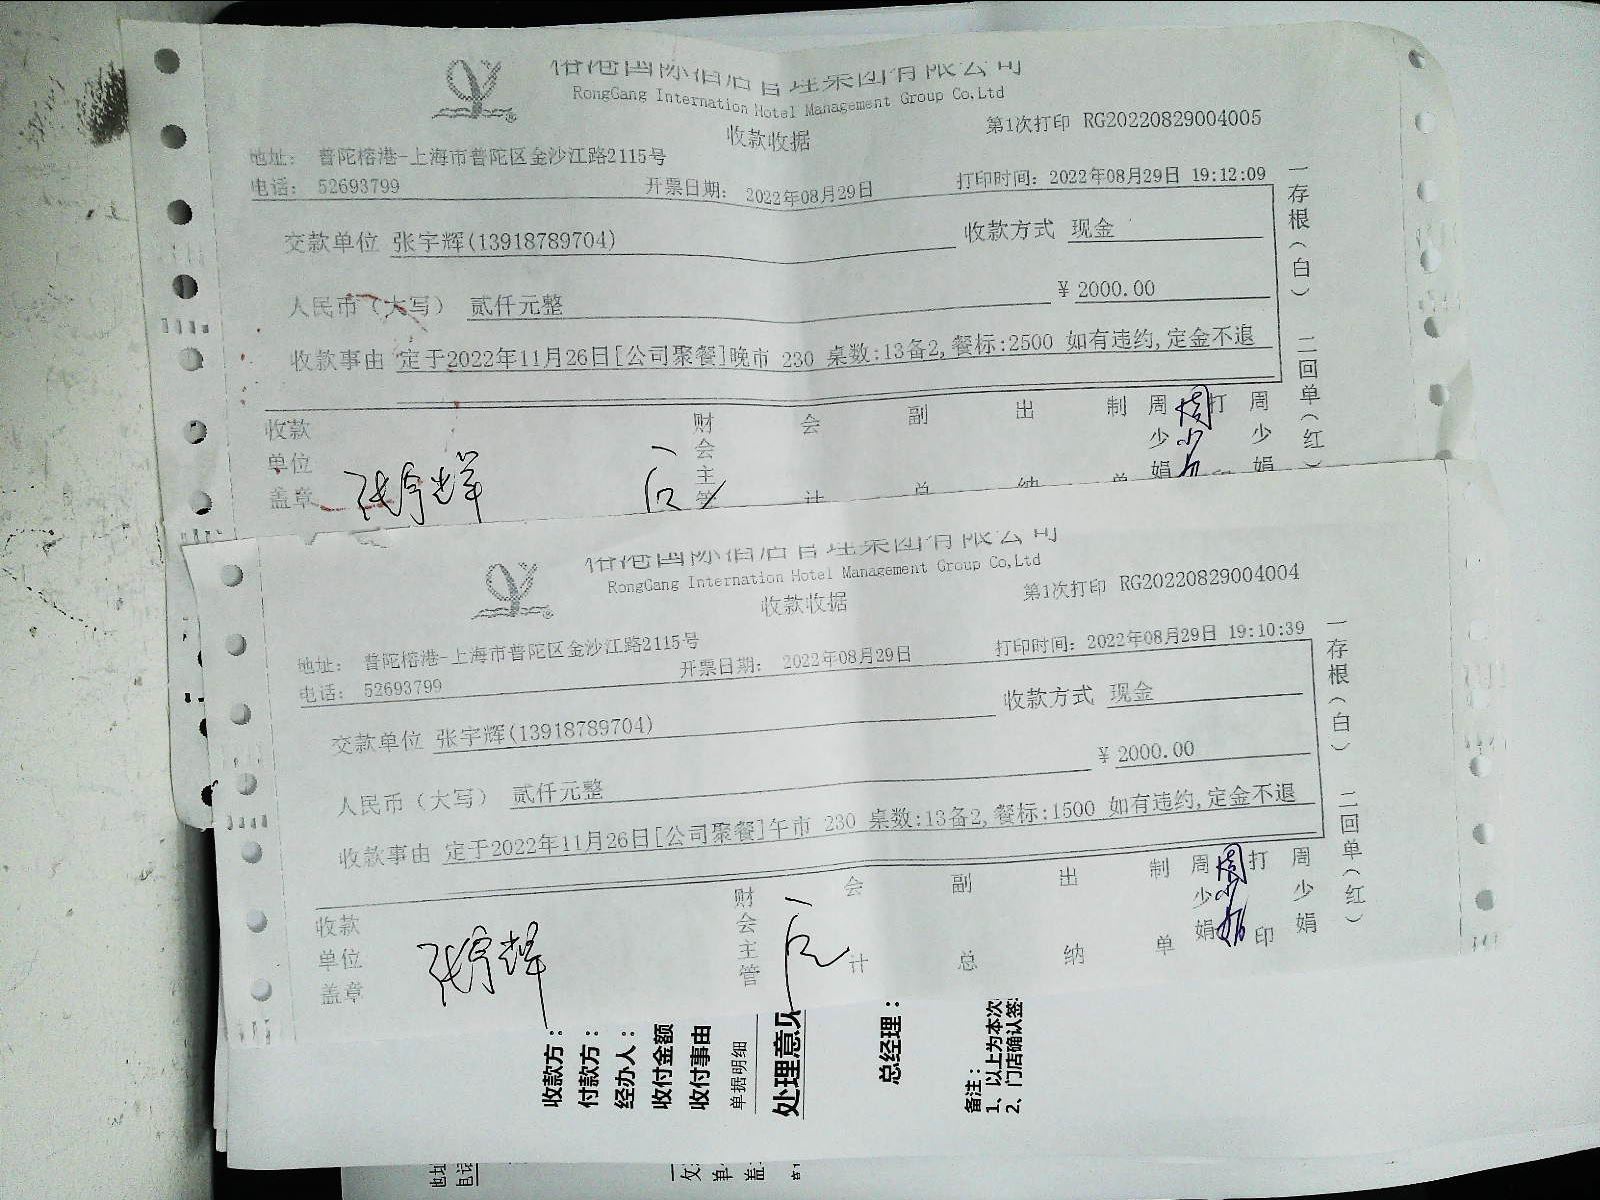 国际酒店管理集团有限公司
RongGang Internation Hotel Management Group Co,Ltd
收款收据
第1次打印 RG20220829004005
地址: 普陀榕港-上海市普陀区金沙江路2115号
电话: 52693799
开票日期: 2022年08月29日
打印时间: 2022年08月29日 19:12:09
交款单位 张宇辉(13918789704)
收款方式 现金
人民币(大写) 贰仟元整
¥ 2000.00
收款事由 定于2022年11月26日[公司聚餐]晚市 230 桌数:13备2,餐标:2500 如有违约,定金不退
一存根(白) 二回单(红)
收款单位盖章
张宇辉
财会主管
会计
副总
出纳
制单
周少娟
周少
打印
周少娟
国际酒店管理集团有限公司
RongGang Internation Hotel Management Group Co,Ltd
收款收据
第1次打印 RG20220829004004
地址: 普陀榕港-上海市普陀区金沙江路2115号
电话: 52693799
开票日期: 2022年08月29日
打印时间: 2022年08月29日 19:10:39
交款单位 张宇辉(13918789704)
收款方式 现金
人民币(大写) 贰仟元整
¥ 2000.00
收款事由 定于2022年11月26日[公司聚餐]午市 230 桌数:13备2,餐标:1500 如有违约,定金不退
一存根(白) 二回单(红)
收款单位盖章
张宇辉
财会主管
会计
副总
出纳
制单
周少娟
周少娟
打印
周少娟
收款方:
付款方:
经办人:
收付金额
收付事由
单据明细
处理意见
总经理:
备注:
1、以上为本次
2、门店确认签
地址
电话
单
盖